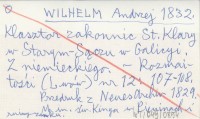 WILHELM Andrzej 1832.
Klasztor zakonnic St. Klary
w Starym Sączu w Galicyi.
Z niemieckiego. - Rozmai-
tości (Lwów) nr. 12
Przedruk z Neues Archiv 1829.
św. Kinga w Pieninach